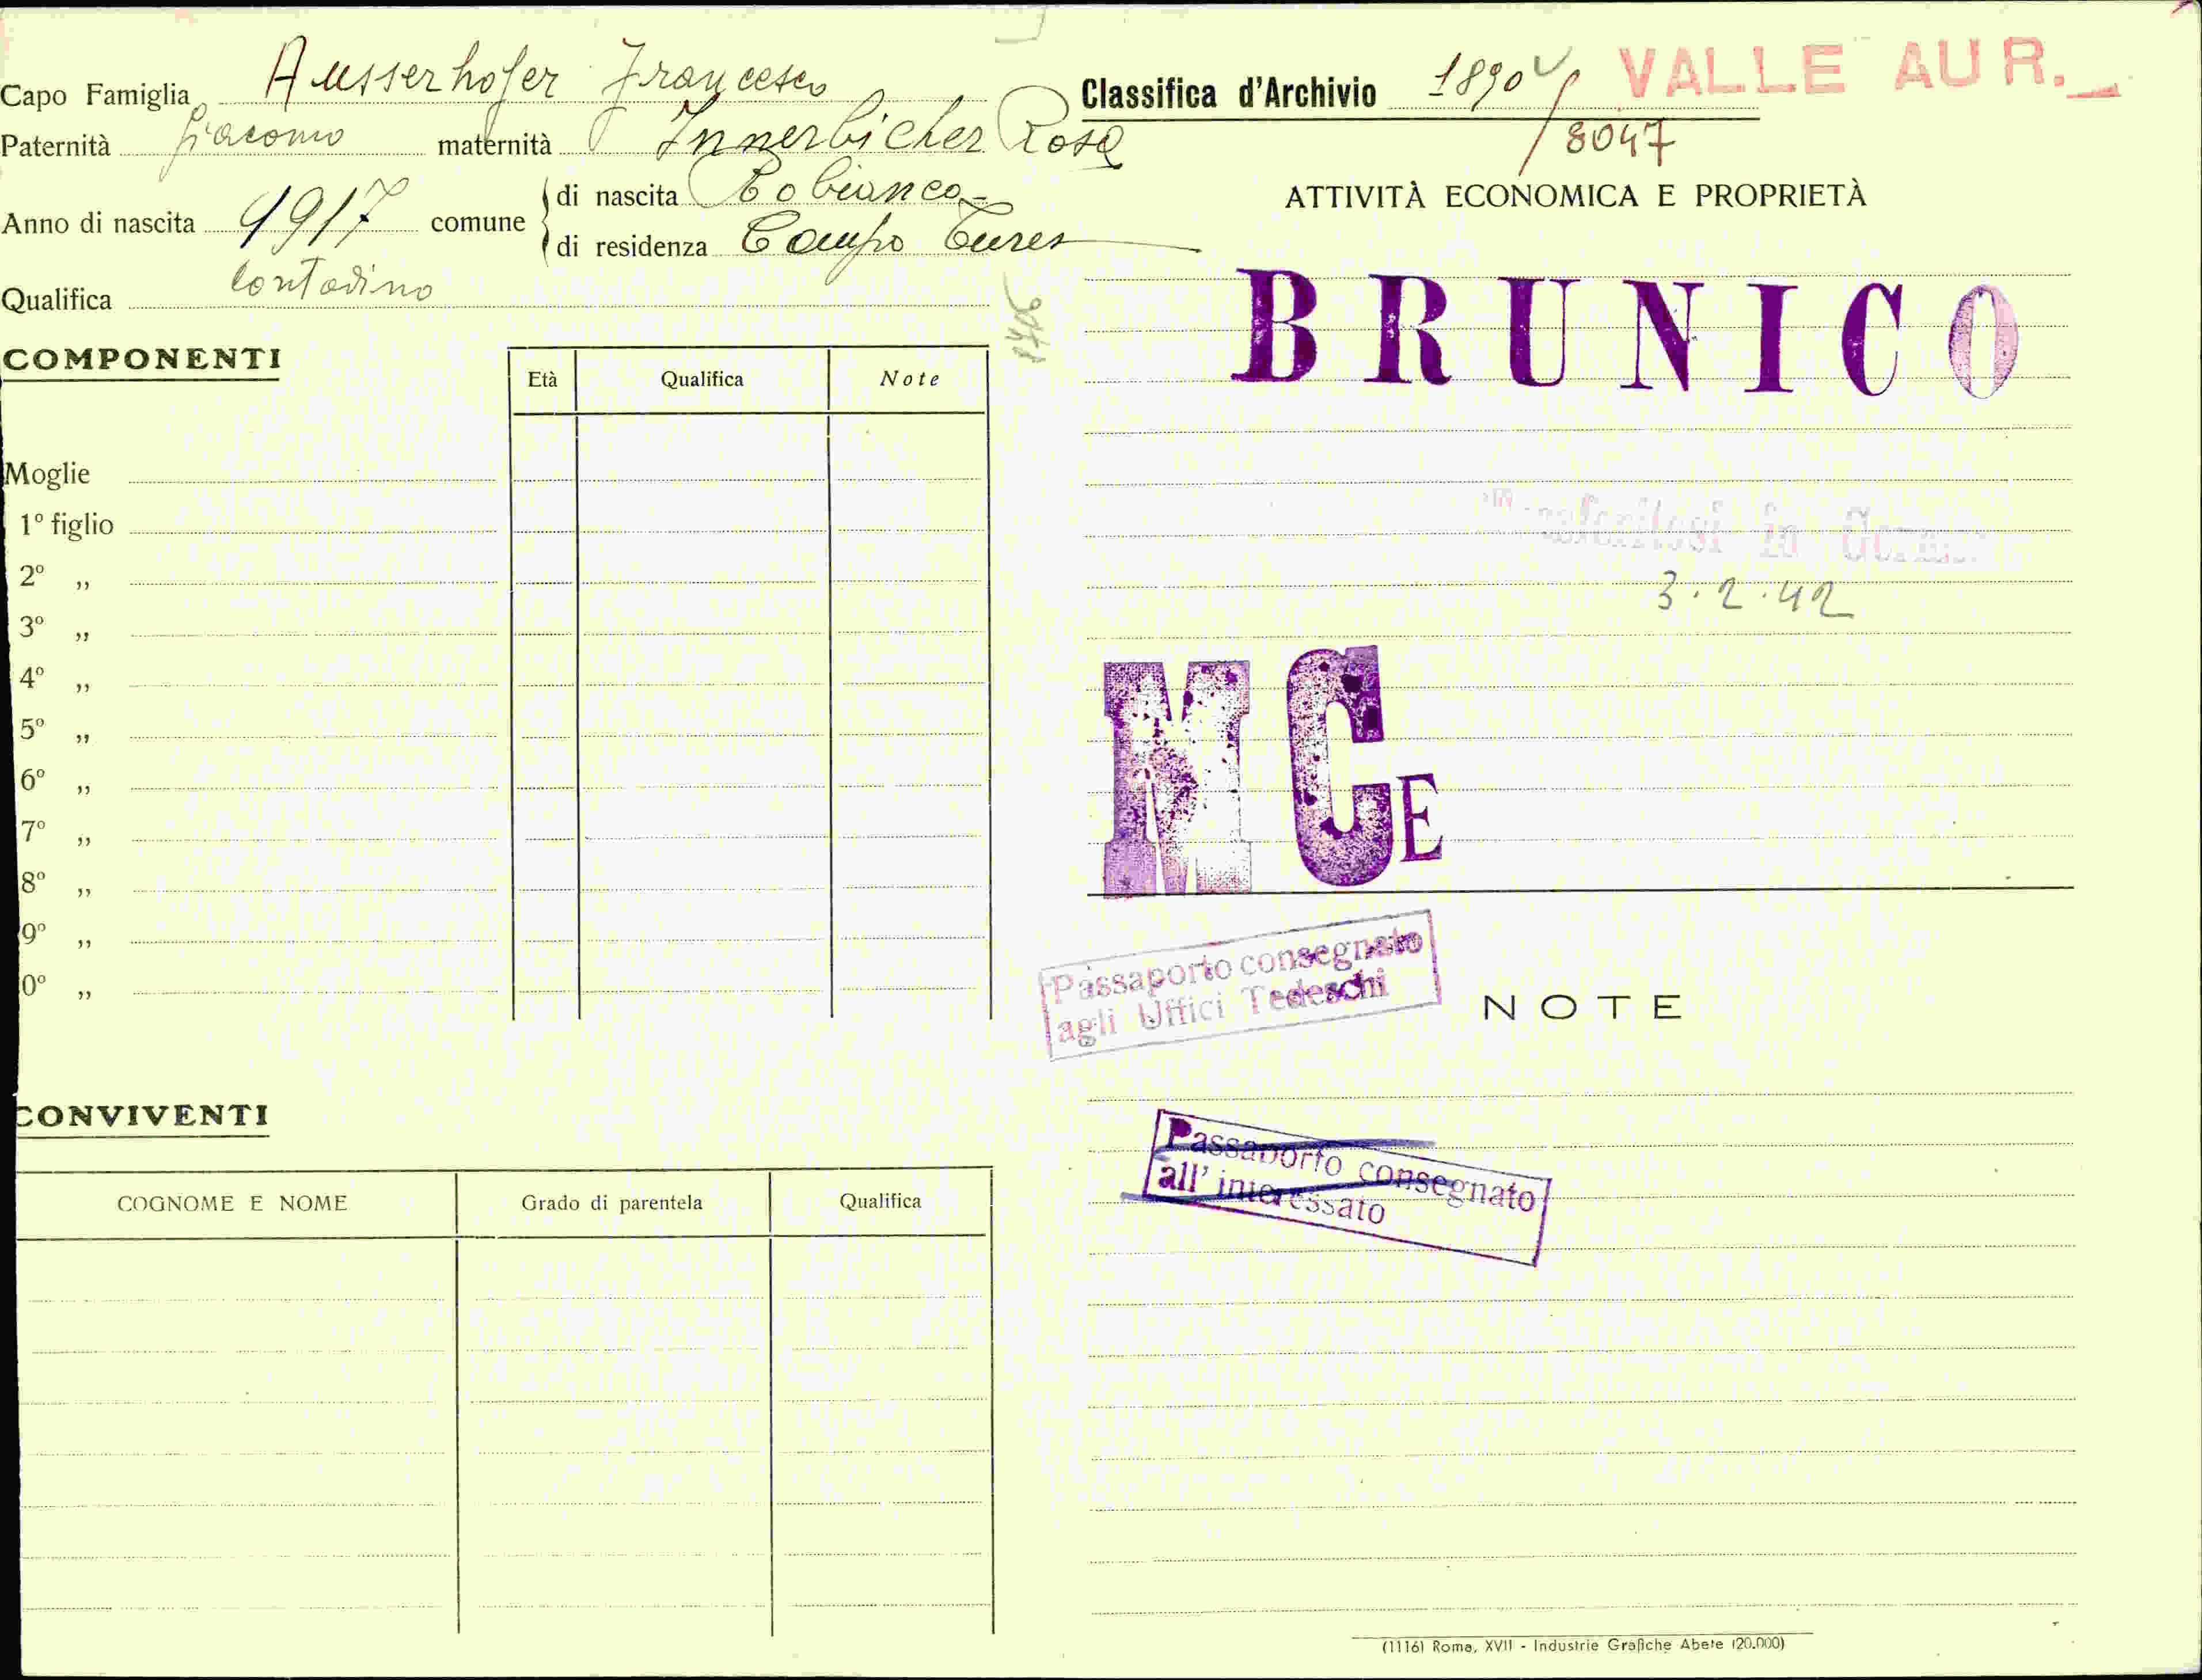 Capo Famiglia Ausserhofer Francesco
Paternità Giacomo maternità Innerbicher Rosa
Anno di nascita 1917 comune di nascita Cobianco
di residenza Campo Tures
Qualifica Contadino
COMPONENTI
Età Qualifica Note
Moglie
1º figlio
2º „
3º „
4º „
5º „
6º „
7º „
8º „
9º „
0º „
CONVIVENTI
COGNOME E NOME Grado di parentela Qualifica
Classifica d'Archivio 1890 VALLE AUR.
/8047
ATTIVITÀ ECONOMICA E PROPRIETÀ
BRUNICO
in
3.2.42
M C E
Passaporto consegnato
agli Uffici Tedeschi
NOTE
Passaporto consegnato
all' interessato
(1116) Roma, XVII - Industrie Grafiche Abete (20.000)